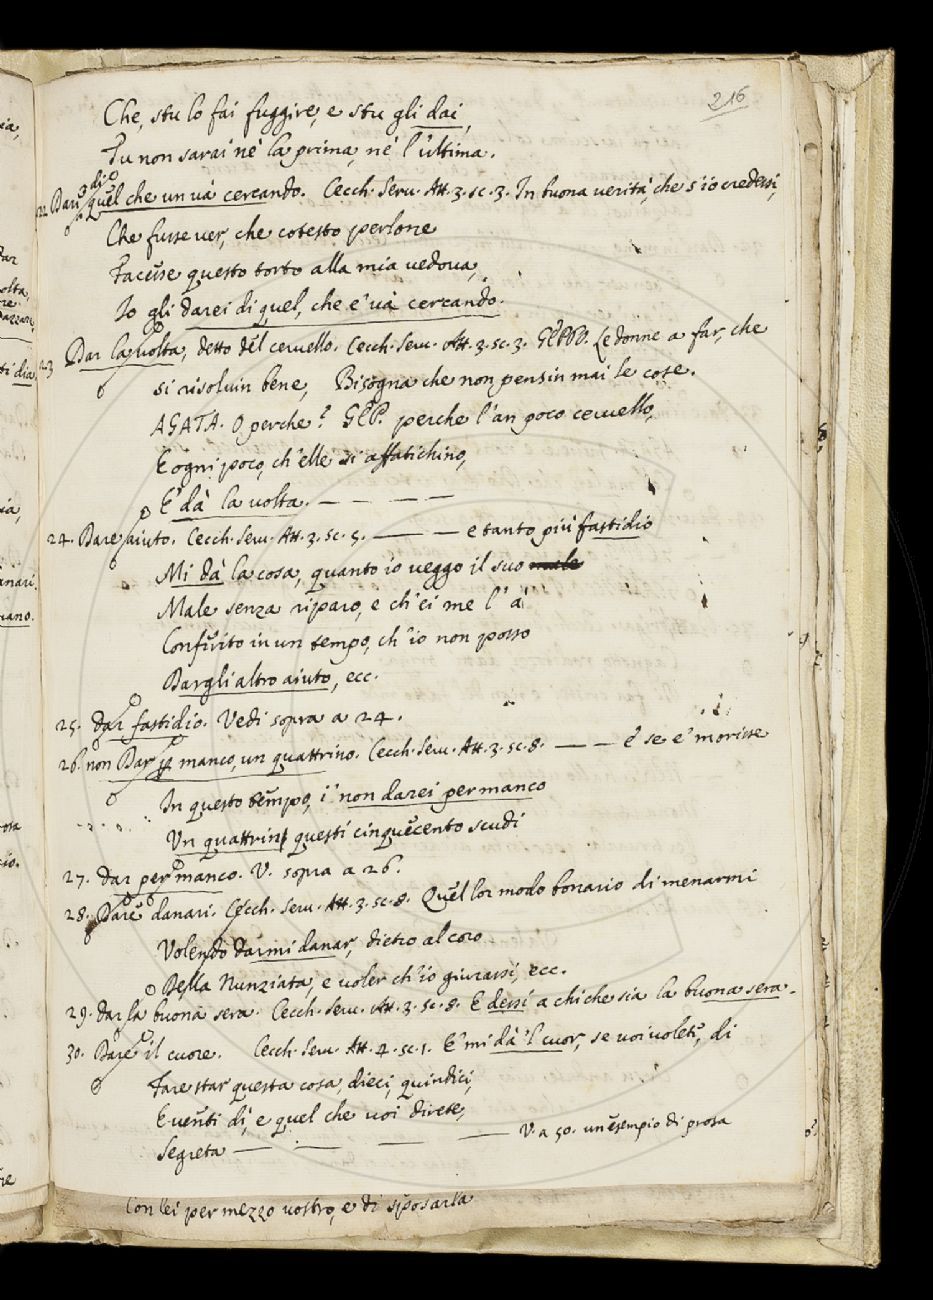 216
Che, stu lo fai fuggire, e stu gli dai,
Tu non sarai nè la prima, nè l'ultima.
22 Dar di quel che un và cercando. Cecch. Serv. Att. 3. sc. 3. In buona verità, che s'io credessi,
Che fusse ver, che cotesto perlone
Facesse questo torto alla mia vedova,
Io gli darei di quel, che e' và cercando.
23 Dar la volta, detto del cervello. Cecch. Serv. Att. 3. sc. 3. GEPPO. Le donne a far, che
si risolvin bene, Bisogna che non pensin mai le cose.
AGATA. O perche? GEP. perche l'an poco cervello,
E ogni poco, ch'elle si affatichino,
E' dà la volta. — — — —
24. Dare aiuto. Cecch. Serv. Att. 3. sc. 5. — — e tanto più fastidio
Mi dà la cosa, quanto io veggo il suo male
Male senza riparo, e ch'ei me l'à
Conferito in un tempo, ch'io non posso
Dargli altro aiuto, ecc.
25. Dar fastidio. Vedi sopra a 24.
26. non Dar per manco, un quattrino. Cecch. Serv. Att. 3. sc. 8. — — E se e' morisse
In questo tempo, i' non darei per manco
Un quattrin questi cinquecento scudi
27. Dar per manco. V. sopra a 26.
28. Dare danari. Cecch. Serv. Att. 3. sc. 8. Quel lor modo bonario di menarmi
Volendo darmi danar, dietro al coro
Della Nunziata, e voler ch'io giurassi, ecc.
29. Dar la buona sera. Cecch. Serv. Att. 3. sc. 8. E dessi a chi che sia la buona sera.
30. Dare il cuore. Cecch. Serv. Att. 4. sc. 1. E' mi dà 'l cuor, se voi volete, di
Fare star questa cosa dieci, quindici,
E venti dì, e quel che voi direte,
Segreta — — — — V. a 50. un esempio di prosa
Con lei per mezzo vostro, e di sposarla